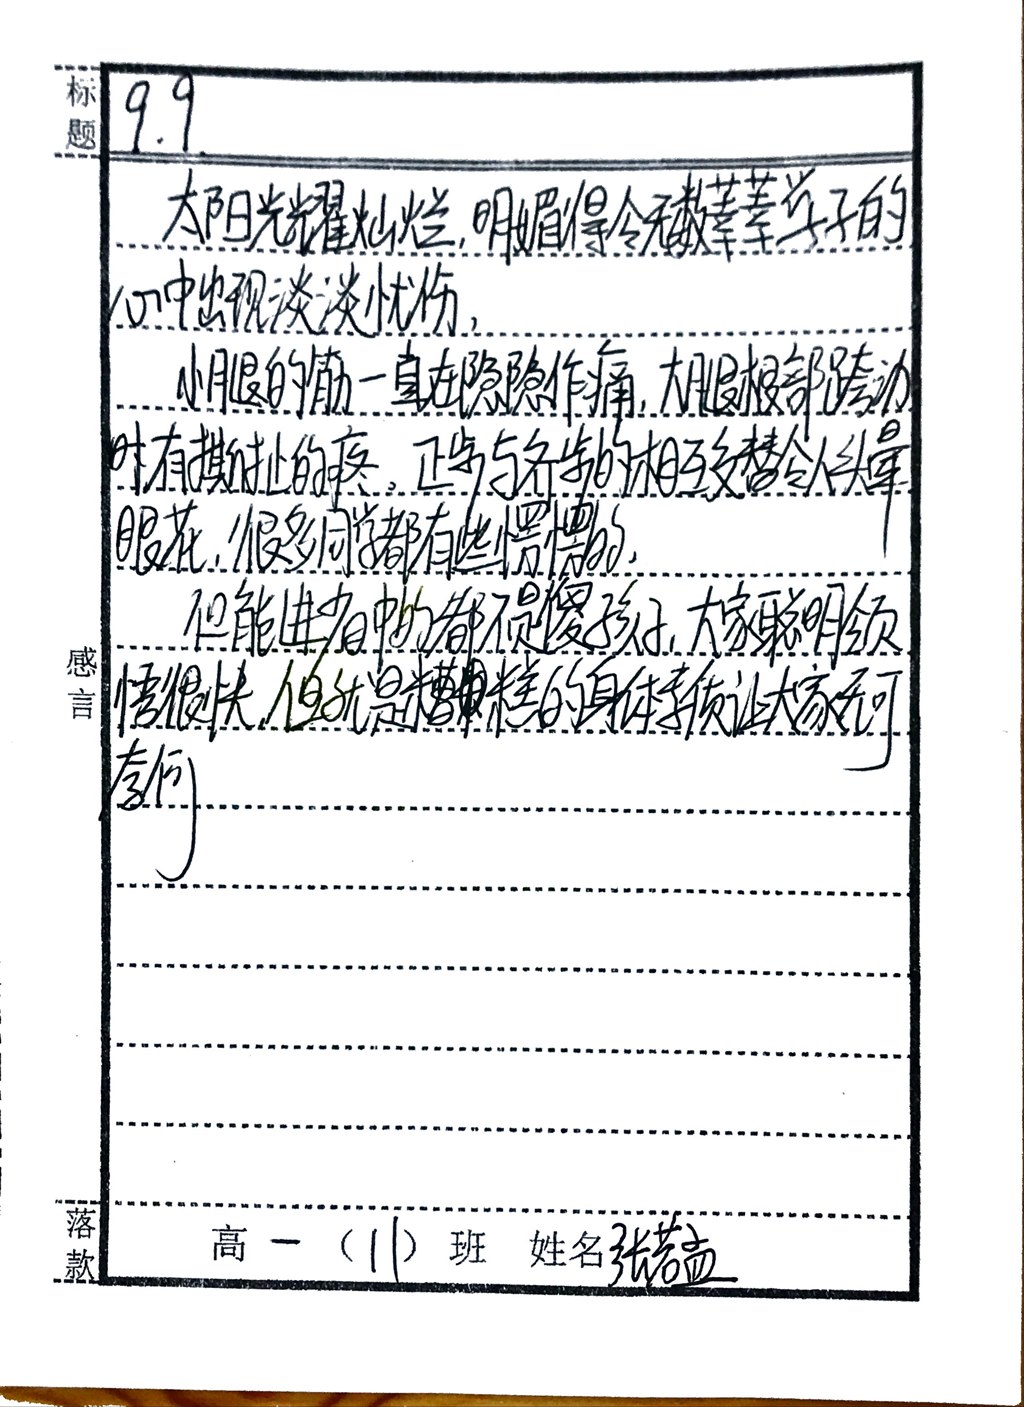 标题
9.9.
太阳光耀灿烂，明媚得令无数莘莘学子的
心中出现淡淡忧伤，
小腿的筋一直在隐隐作痛，大腿根部跨动
时有撕扯的疼。正步与齐步的相互交替令人头晕
眼花，很多同学都有些愣愣的，
但能进省中的都不是傻孩子，大家聪明领
悟很快，但就是糟糕的身体素质让大家无可
奈何
感言
落款
高一（11）班 姓名张若孟